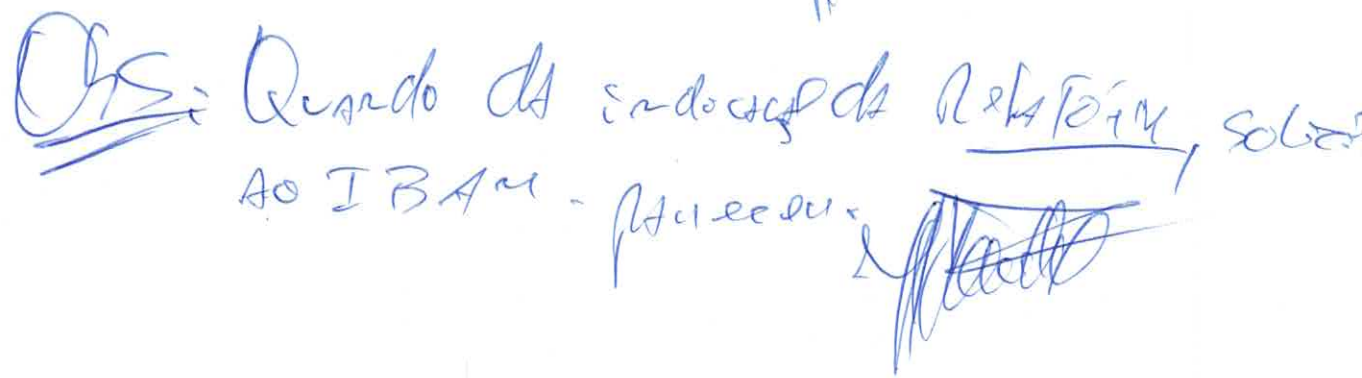 Obs: Quando da indicação da Relatoria, solici
ao IBAM - parecer.